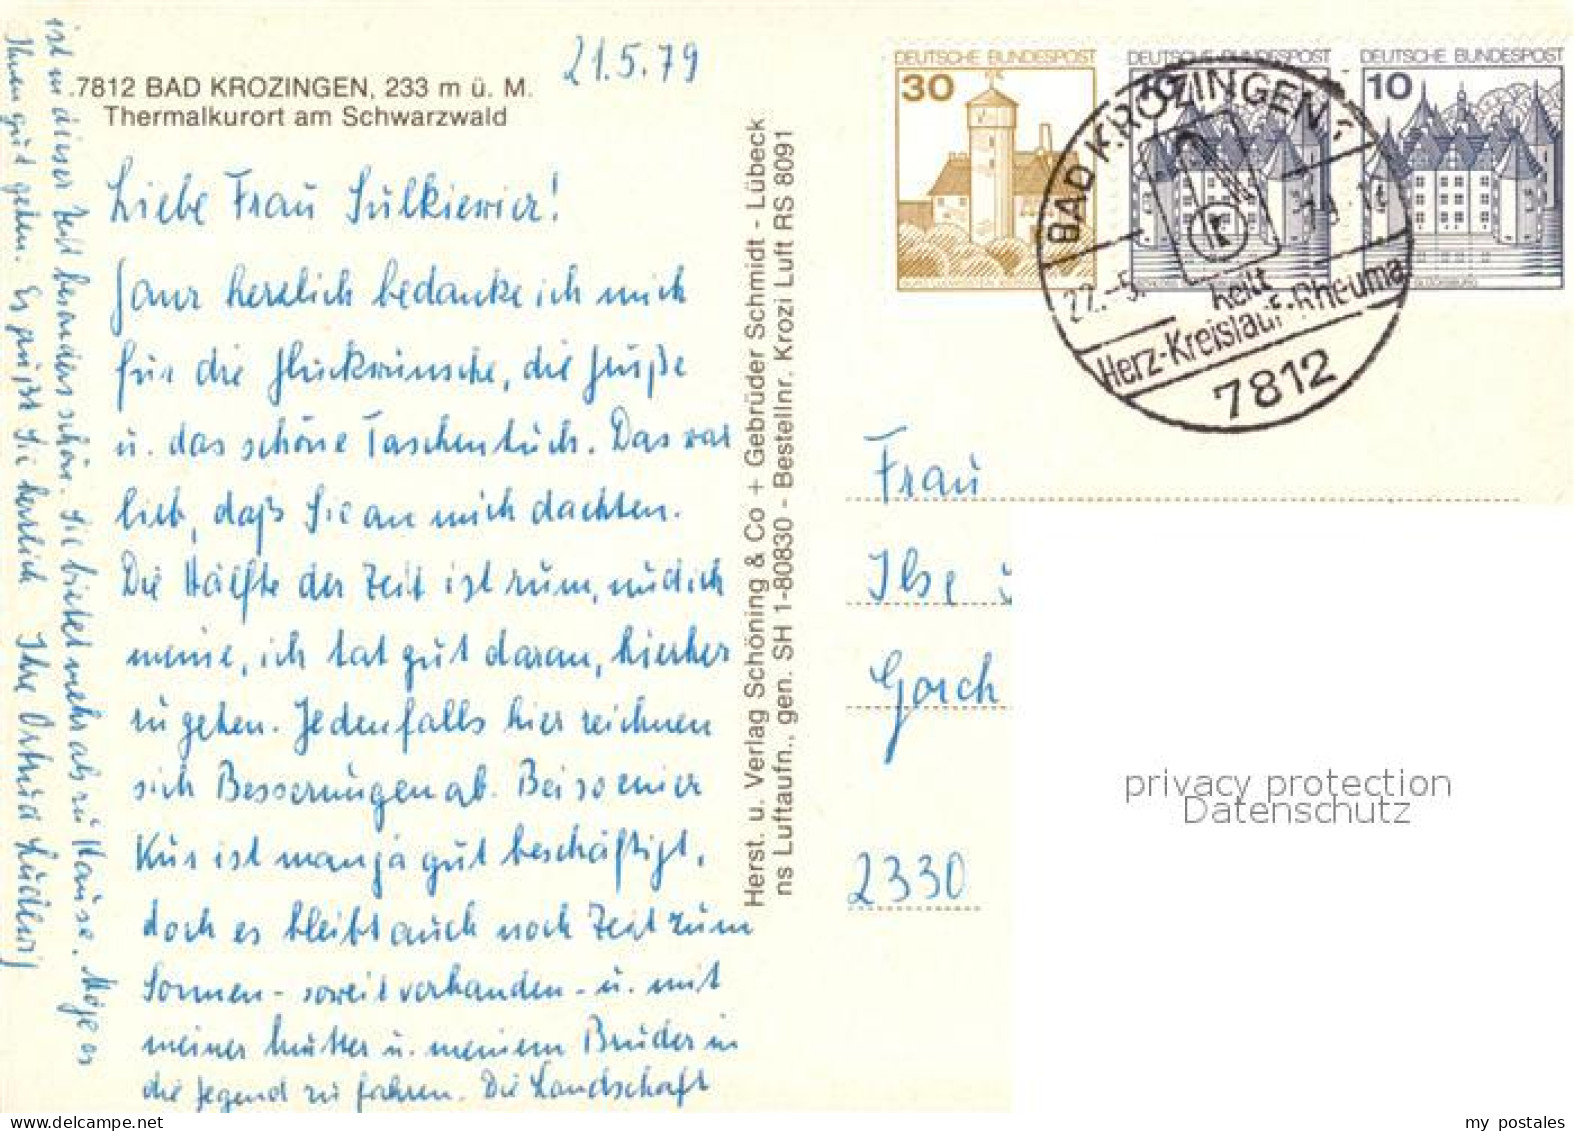 7812 BAD KROZINGEN, 233 m ü. M.
Thermalkurort am Schwarzwald
21.5.79
Liebe Frau Sulkiewicz!
Ganz herzlich bedanke ich mich
für die Glückwünsche, die Grüße
u. das schöne Taschentuch. Das war
lieb, daß Sie an mich dachten.
Die Hälfte der Zeit ist rum, und ich
meine, ich tat gut daran, hierher
zu gehen. Jedenfalls hier zeichnen
sich Besserungen ab. Bei so einer
Kur ist man ja gut beschäftigt,
doch es bleibt auch noch Zeit zum
Sonnen - soweit vorhanden - u. mit
meiner Mutter u. meinem Bruder in
die Gegend zu fahren. Die Landschaft
ist in dieser Zeit besonders schön. Sie bietet mehr als zu Hause. Möge es
Ihnen gut gehen. Es grüßt Sie herzlich Ihre Ortrud Ludewig
Herst. u. Verlag Schöning & Co + Gebrüder Schmidt - Lübeck
ns Luftaufn., gen. SH 1-80830 - Bestellnr. Krozi Luft RS 8091
DEUTSCHE BUNDESPOST
30
DEUTSCHE BUNDESPOST
DEUTSCHE BUNDESPOST
10
BAD KROZINGEN
22.-5.
heilt
Herz-Kreislauf-Rheuma
7812
Frau
Ilse
Gorch
2330
privacy protection
Datenschutz
my postales